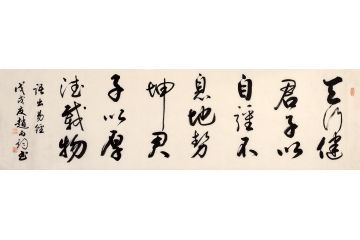 天行健
君子以
自强不
息地势
坤君
子以厚
德载物
语出易经
戊戌夏赵
书